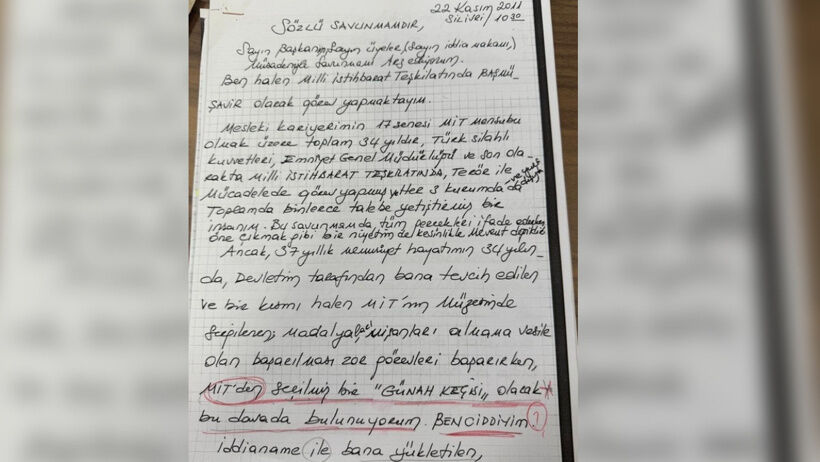 22 Kasım 2011
SİLİVRİ / 10 30
SÖZLÜ SAVUNMAMDIR,
Sayın Başkanım, Sayın üyeler, (Sayın iddia makamı,)
Müsadenizle savunmamı Arz ediyorum.
Ben halen Milli istihbarat Teşkilatında BAŞMÜ-
ŞAVİR olarak görev yapmaktayım.
Mesleki kariyerimin 17 senesi MİT Mensubu
olmak üzere toplam 34 yıldır, Türk silahlı
kuvvetleri, Emniyet Genel Müdüklüğü ve son ola-
rakta Milli İSTİHBARAT TEŞKİLATINDA, Terör ile
Mücadelede görev yapmış her 3 kurumda da
Toplamda binlerce talebe yetiştirmiş bir
insanım. Bu savunmamda, tüm gerçekleri ifade ederken
öne çıkmak gibi bir niyetim de kesinlikle mevcut değildir
Ancak, 37 yıllık memuriyet hayatımın 34 yılın-
da, Devletim tarafından bana tevcih edilen
ve bir kısmı halen MİT'nin Müzesinde
sergilenen; madalya, nişanları almama vesile
olan başarılması zor görevleri başarırken,
MİT'den seçilmiş bir "GÜNAH KEÇİSİ" olarak
bu davada bulunuyorum. BEN CİDDİYİM. ?
iddianame ile bana yükletilen,